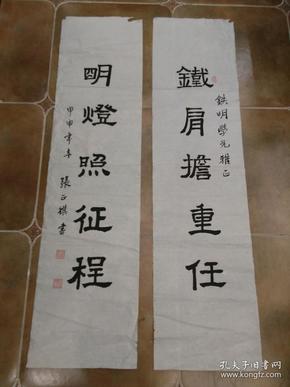 鐵肩擔重任
鉄明學兄雅正
明燈照征程
甲申年冬 張正棋書
孔夫子旧书网